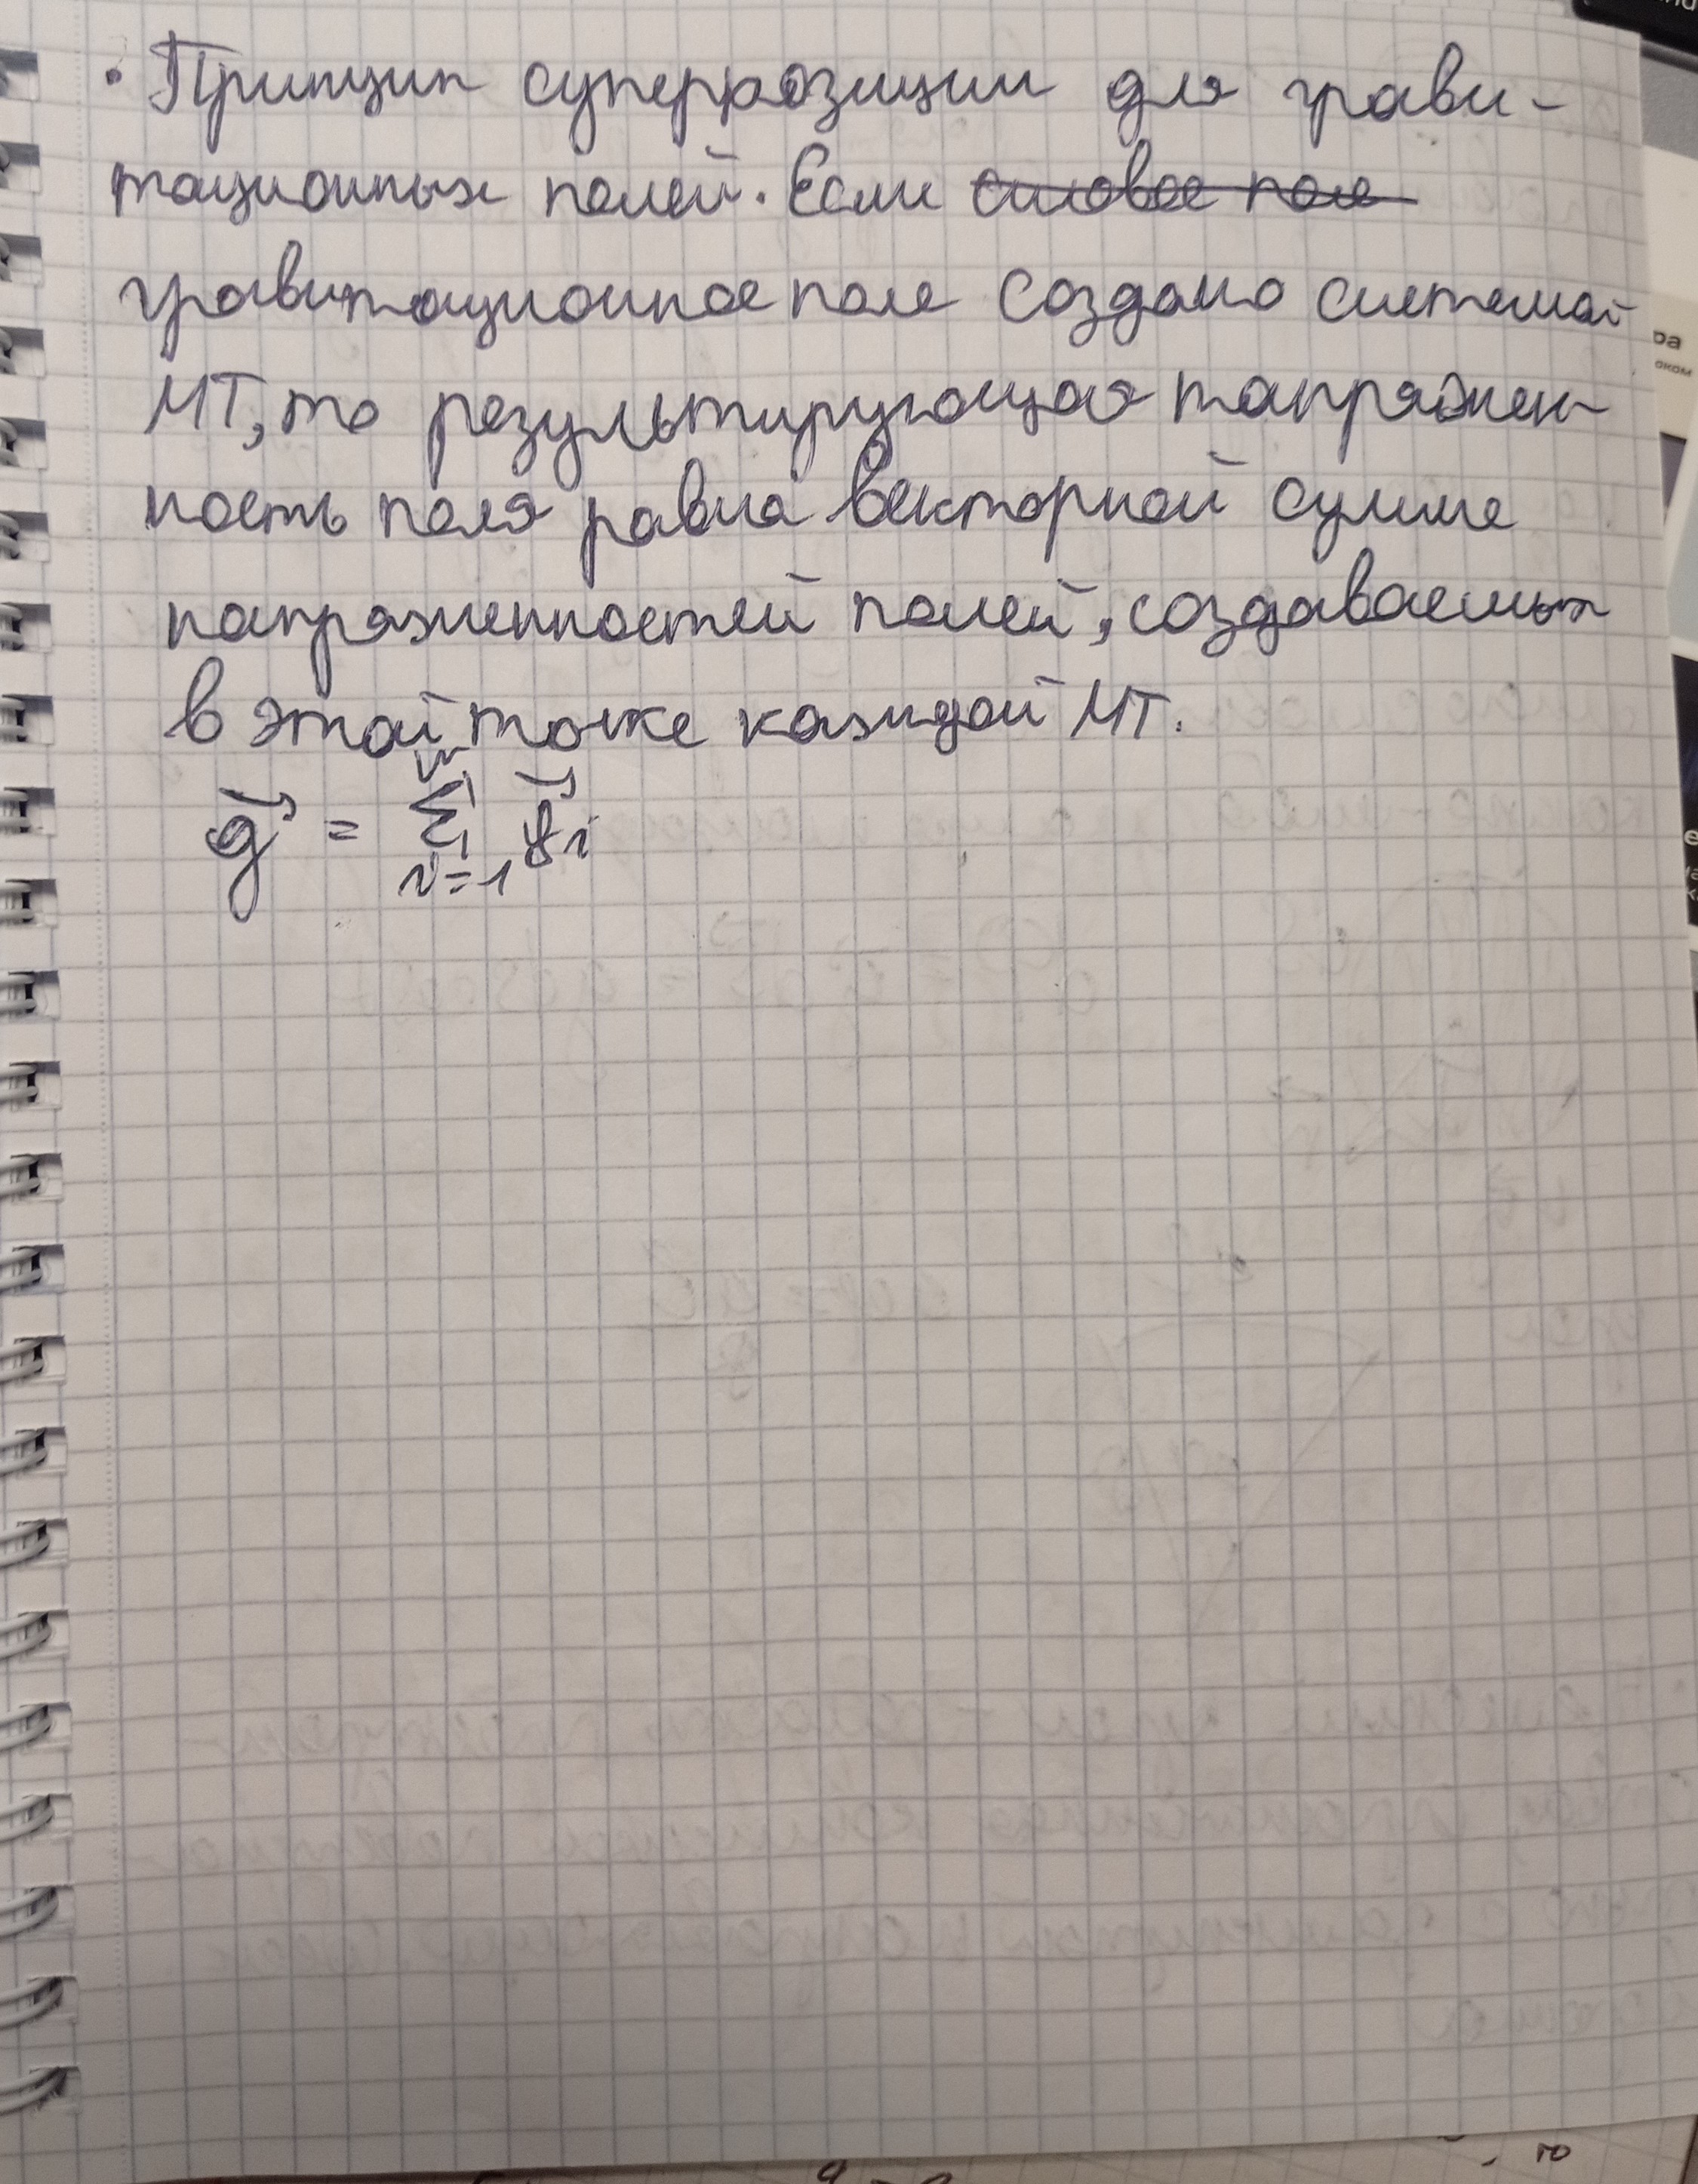 • Принцип суперпозиции для грави-
тационных полей. Если ~~силовое поле~~
гравитационное поле создано системой
МТ, то результирующая напряжен-
ность поля равна векторной сумме
напряженностей полей, создаваемых
в этой точке каждой МТ.
g⃗ = Σ g⃗i
i=1